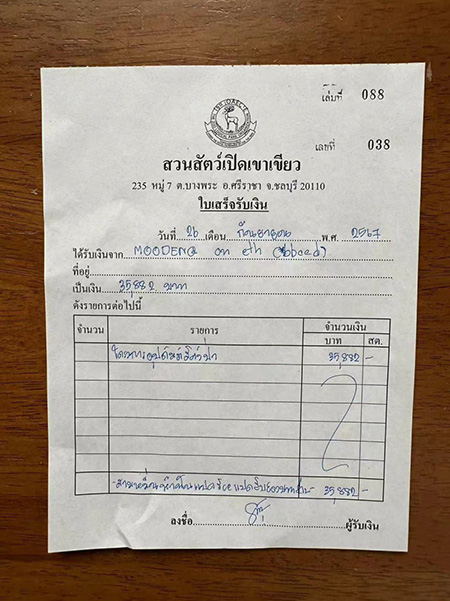 เล่มที่ 088
เลขที่ 038
สวนสัตว์เปิดเขาเขียว
235 หมู่ 7 ต.บางพระ อ.ศรีราชา จ.ชลบุรี 20110
ใบเสร็จรับเงิน
วันที่ 26 เดือน กันยายน พ.ศ. 2567
ได้รับเงินจาก MOODENG on eth
ที่อยู่
เป็นเงิน 35,882 บาท
ดังรายการต่อไปนี้
จำนวน รายการ จำนวนเงิน
บาท สต.
โครงการอุปถัมภ์สัตว์ป่า 35,882 -
-สามหมื่นห้าพันแปดร้อยแปดสิบสองบาทถ้วน- 35,882 -
ลงชื่อ ผู้รับเงิน